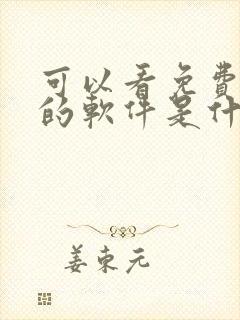 可以看免費
的軟件是什
姜東元